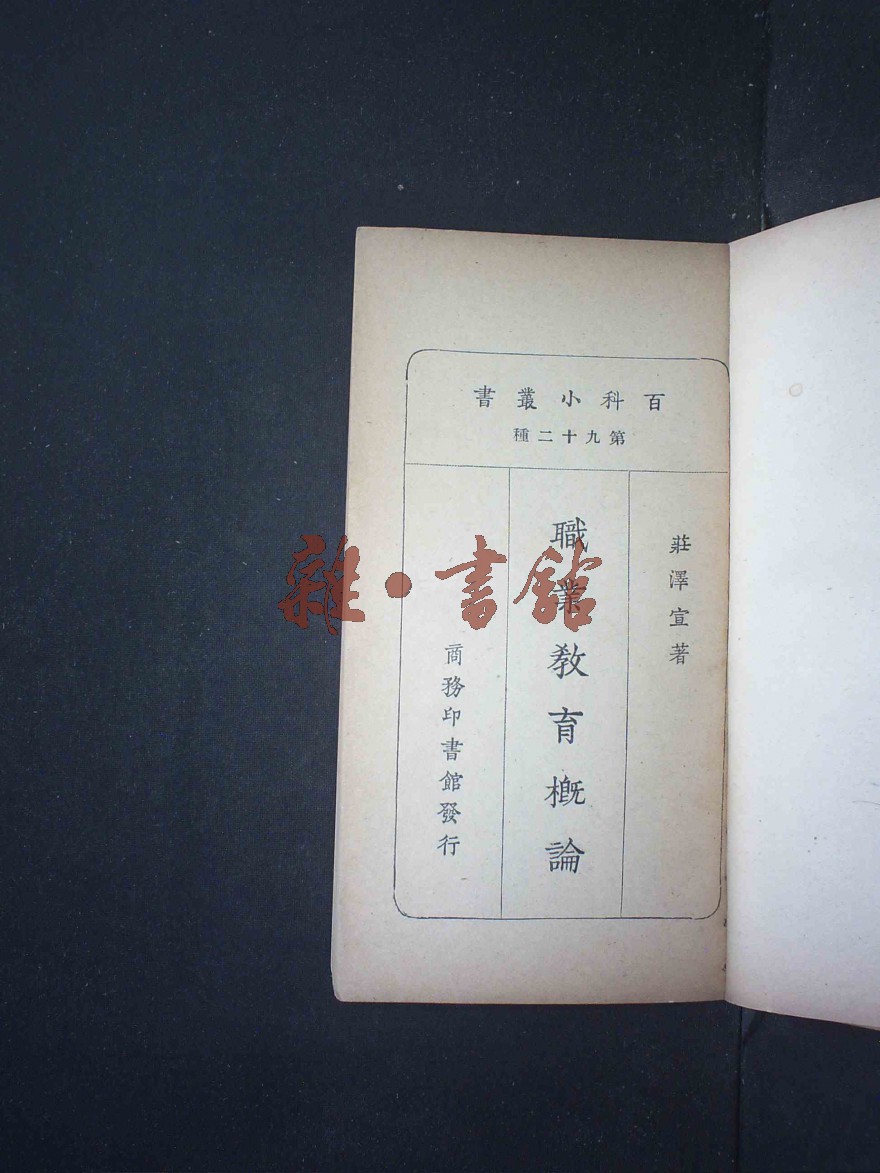 百科小叢書
第九十二種
莊澤宣著
職業教育概論
商務印書館發行
雜·書館